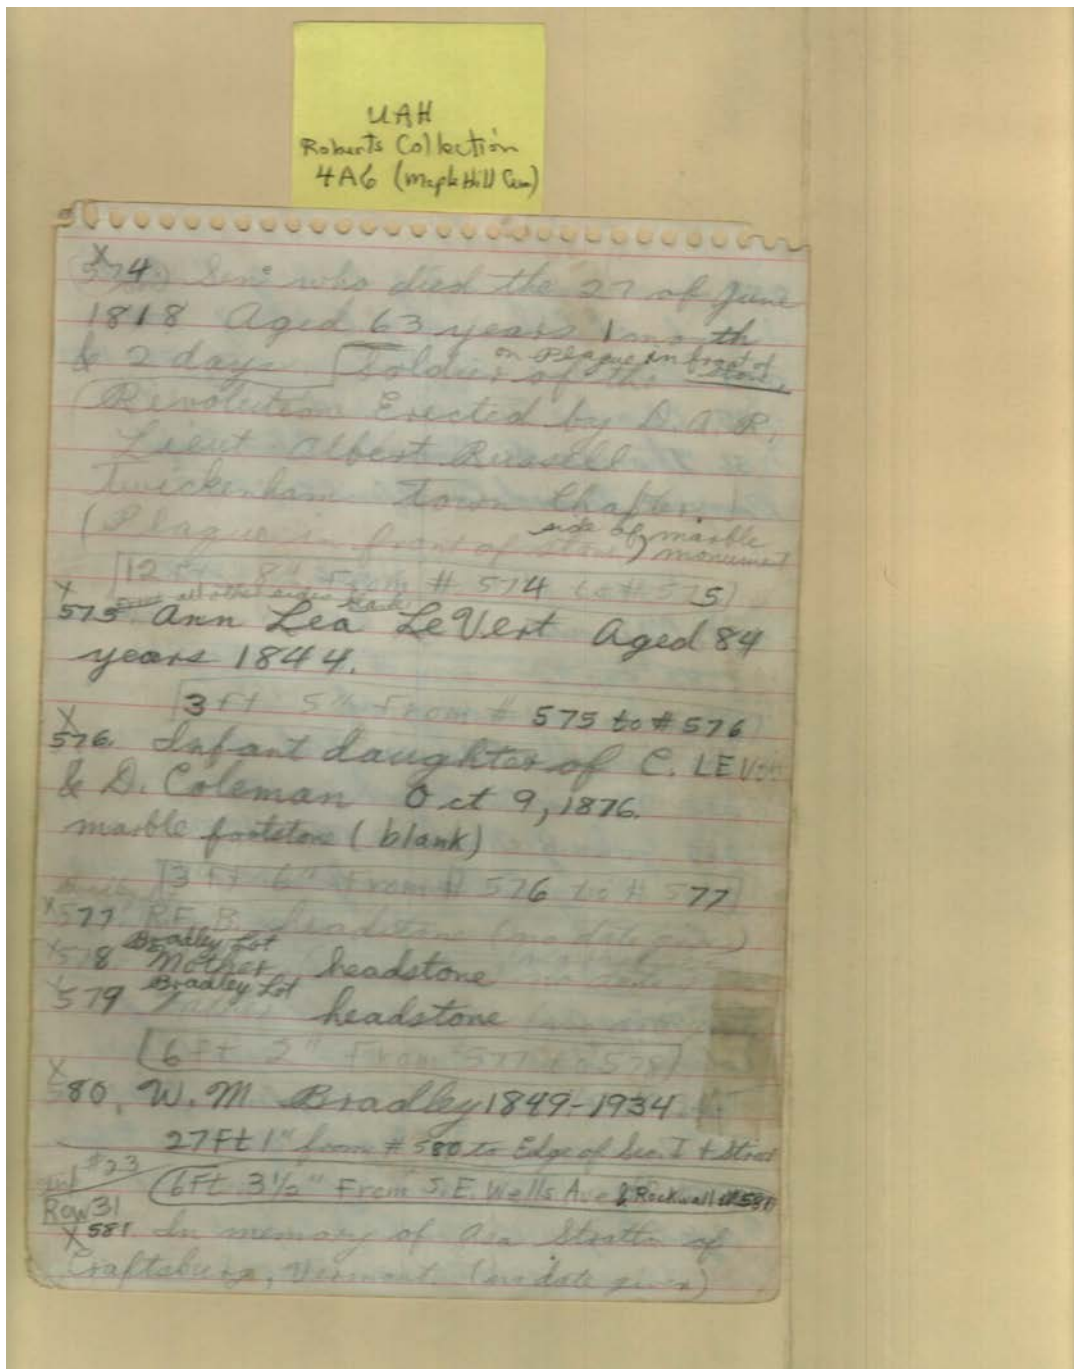 UAH
Roberts Collection
4A6 (Maple Hill Cem)
X
574. Senr who died the 27 of June
1818 Aged 63 years 1 month
& 2 days
on Plague in front of stone,
Soldier of the
Revolution Erected by D.A.R.
Lieut Albert Russell
Twickenham Town Chapter.
(Plague in front of stone)
side of marble monument
12 Ft 8" From # 574 to # 575
all other sides blank
X
575. Ann Lea LeVert Aged 84
years 1844.
3 Ft 5" From # 575 to # 576
X
576. Infant daughter of C. LEVert
& D. Coleman Oct 9, 1876.
marble footstone (blank)
3 Ft 6" From # 576 to # 577
X 577. R.E.B. headstone (no date given)
Bradley Lot
X 578. Mother headstone
Bradley Lot
X 579 headstone
6 Ft 2" From 577 to 578
X
580. W.M. Bradley 1849-1934
27 Ft 1" from # 580 to Edge of Sec. I + Street
#23
6 Ft 3 1/2" From S.E. Wells Ave & Rockwall # 581
Row 31
X 581. In memory of Asa Stratton of
Craftsburg, Vermont. (no date given)